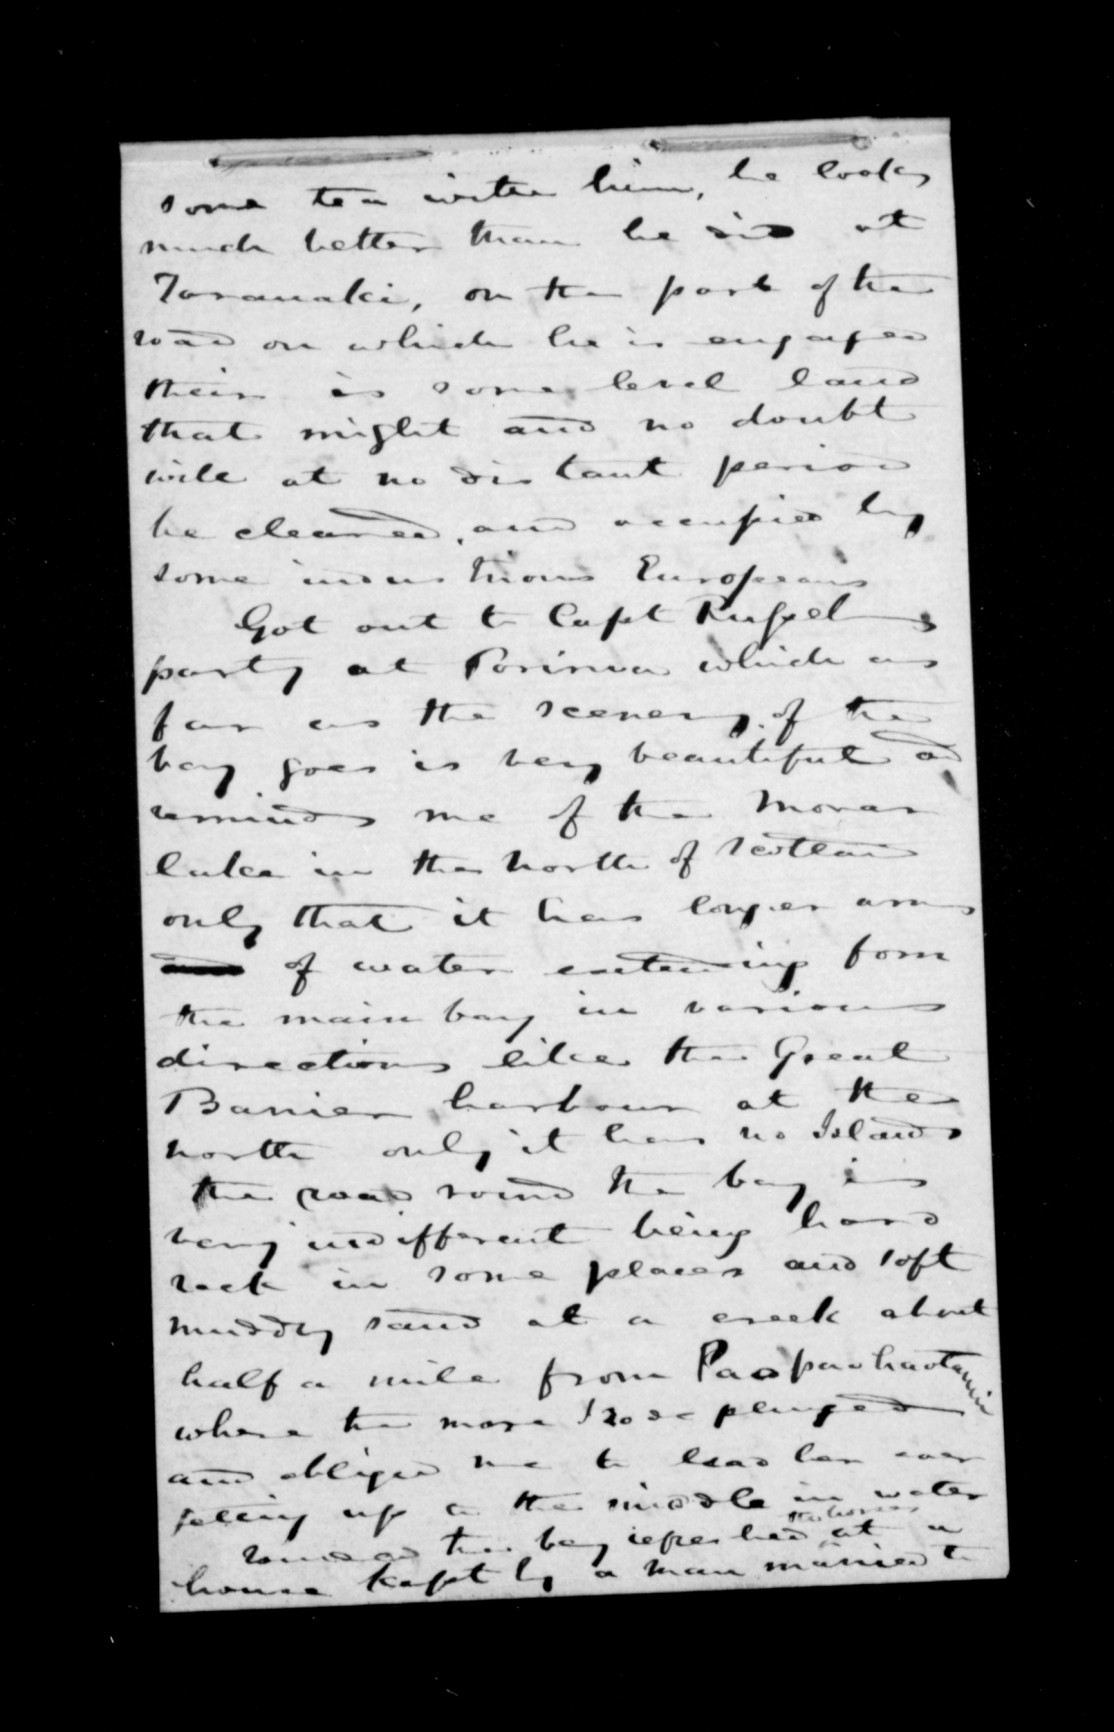 some tea with him, he looks
much better than he did at
Taranaki, on the part of the
road on which he is engaged
their is some level land
that might and no doubt
will at no distant period
be cleared, and occupied by
some industrious Europeans
Got out to Capt Russels
party at Porirua which as
far as the scenery of the
bay goes is very beautiful and
reminds me of the Moran
lake in the north of Scotland
only that it has longer arms
of water extending form
the main bay in various
directions like the Great
Barrier harbour at the
north only it has no Islands
the road round the bay is
very indifferent being hard
rock in some places and soft
muddy sand at a creek about
half a mile from
where the mare I rode plunged
and obliged me to lead her over
getting up to the middle in water
the bay refreshed the horses at a
house kept by a man married to